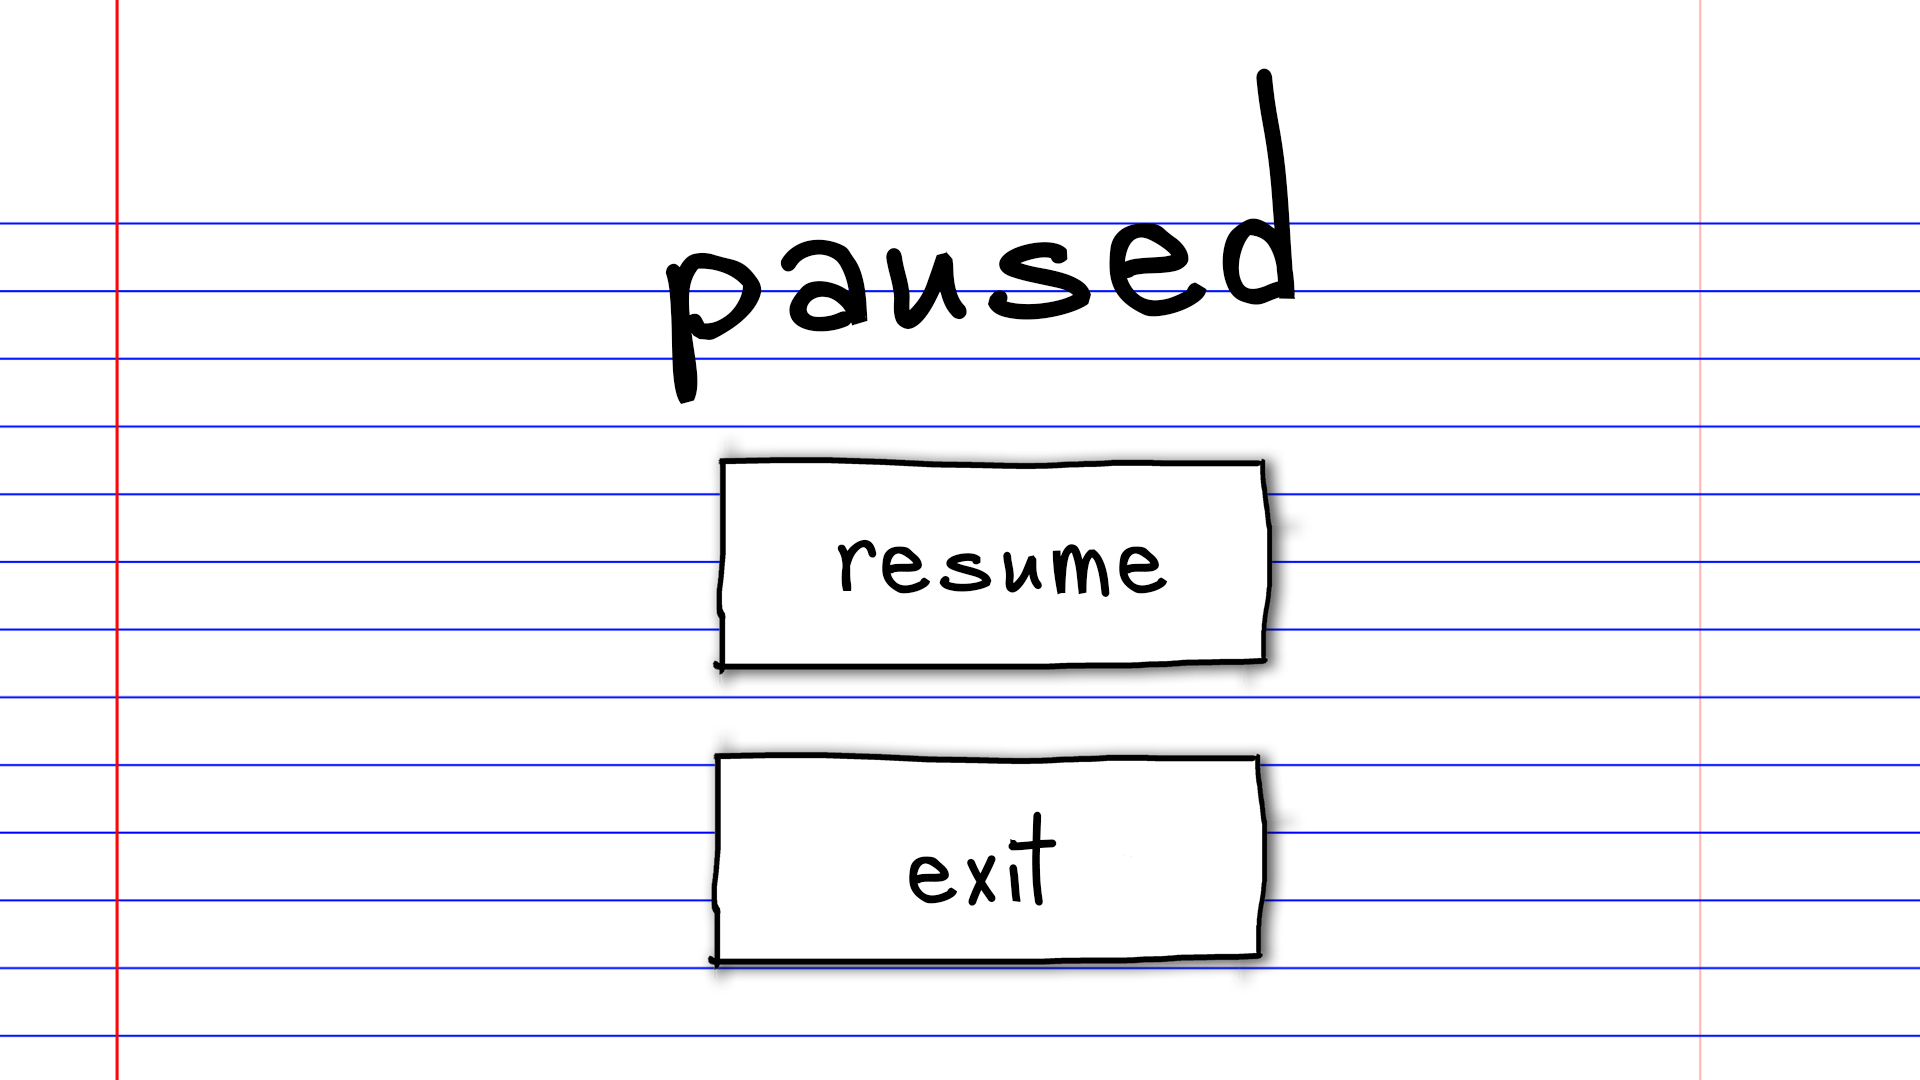 paused
resume
exit